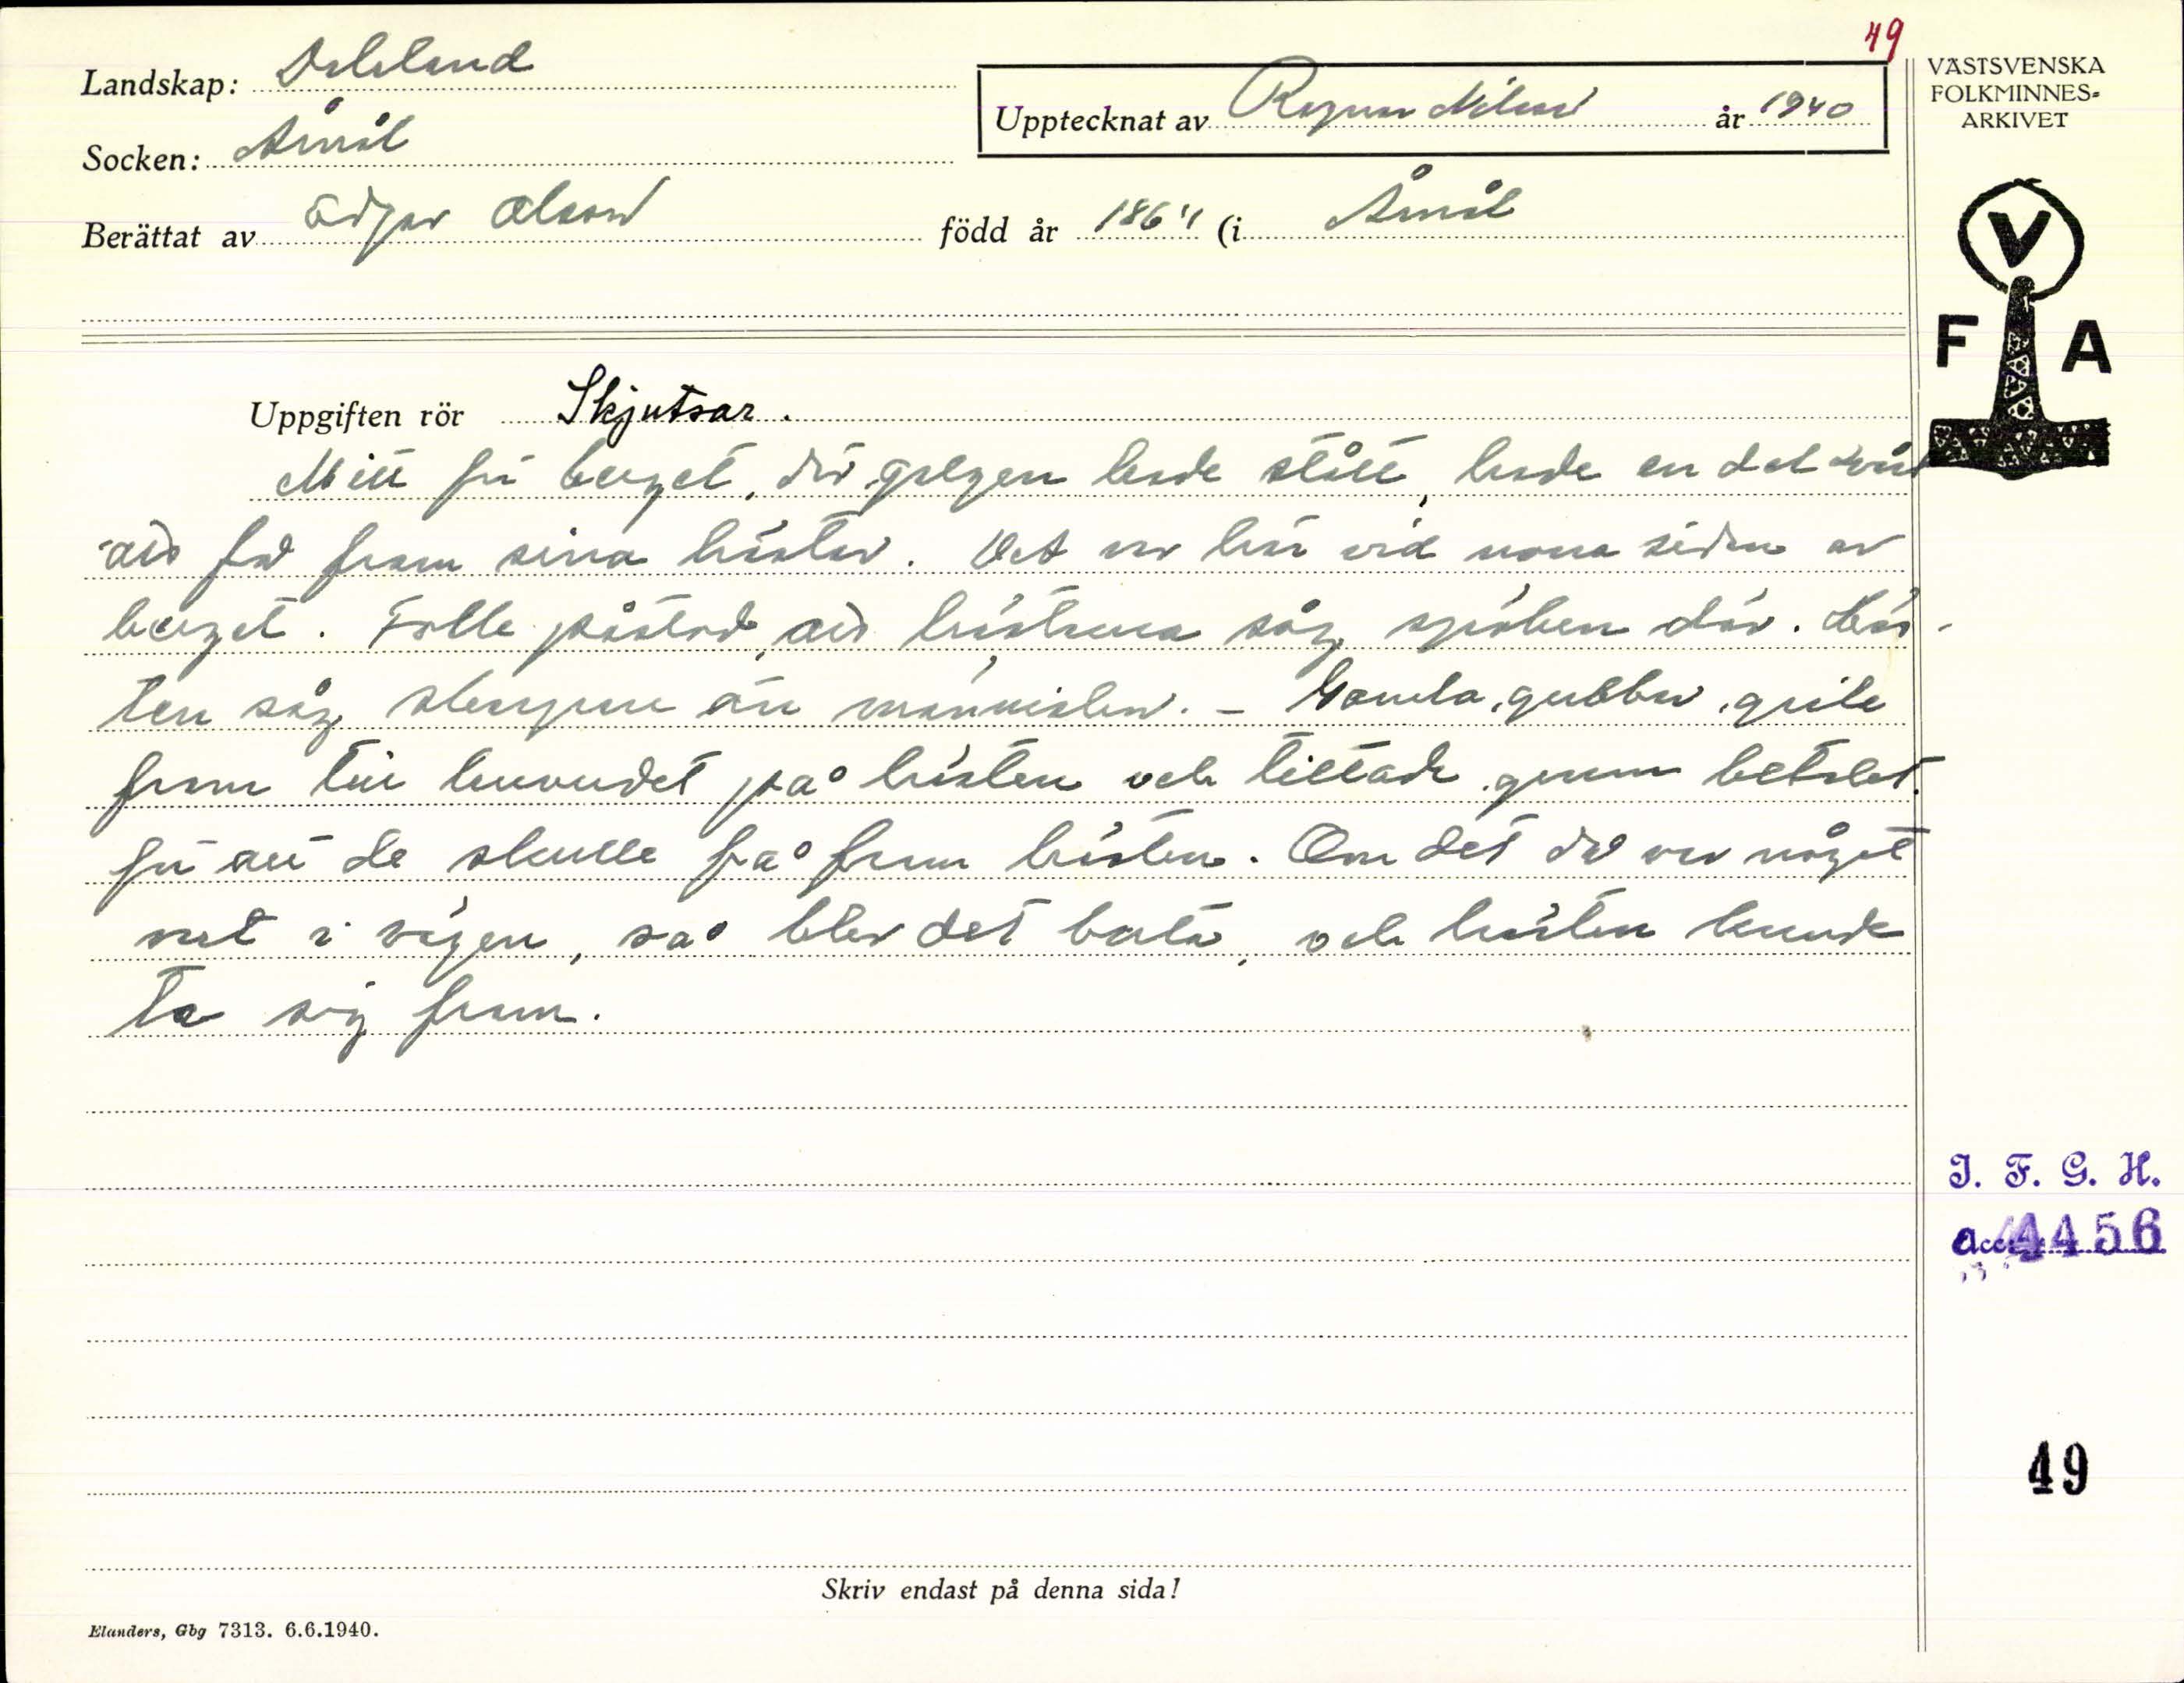 49
Landskap: Dalsland
Upptecknat av Ragnar Nilsson år 1940
VÄSTSVENSKA
FOLKMINNES-
ARKIVET
Socken: Åmål
Berättat av Edgar Olsson född år 1864 (i Åmål
V
F A
Uppgiften rör Skjutsar.
Mitt för berget, där galgen hade stått, hade en del svårt
att få fram sina hästar. Det var här vid norra sidan av
berget. Folk påstod, att hästarna såg spöken där. Häs-
ten såg skarpare än människan. – Gamla gubbar gick
fram till huvudet på hästen och tittade genom betslet
för att de skulle få fram hästen. Om det då var något
ont i vägen, så blev det borta, och hästen kunde
ta sig fram.
I. F. G. H.
acc. 4456
49
Skriv endast på denna sida!
Elanders, Gbg 7313. 6.6.1940.